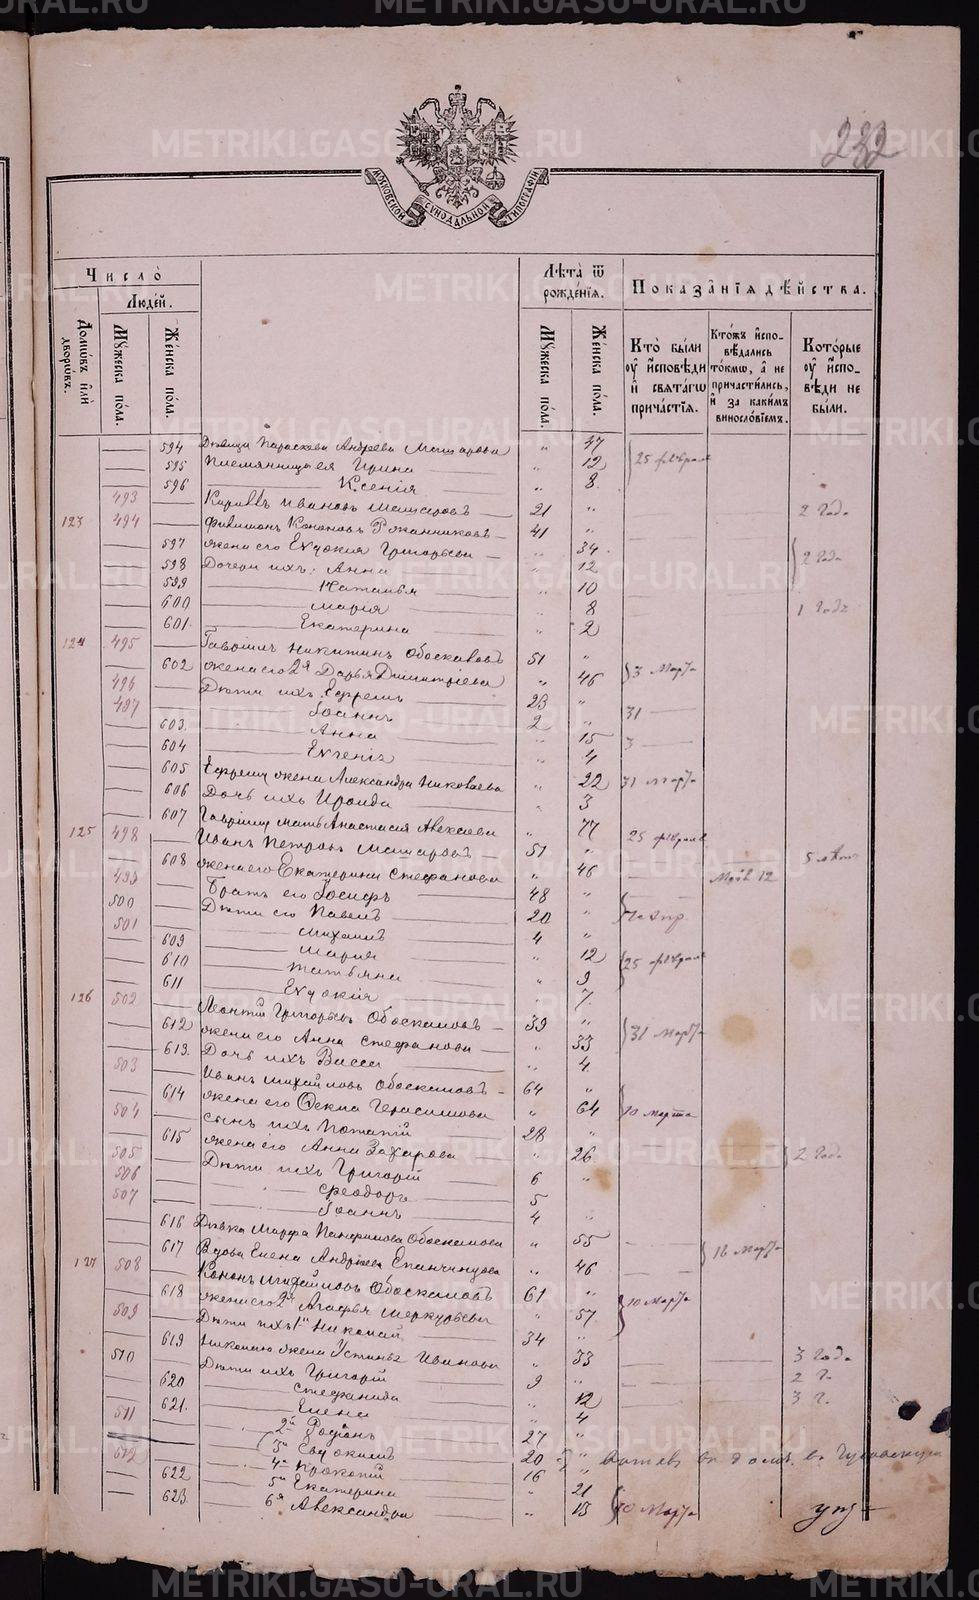 METRIKI.GASO-URAL.RU
232
МОСКОВСКОЙ СУНОДАЛЬНОЙ ТИПОГРАФІИ
Число̀
Люде́й.
Домѡ́въ и҆лѝ дворѡ́въ.
Мꙋ́жеска по́ла.
Же́нска по́ла.
Лѣ́та ѿ рожде́нїѧ.
Мꙋ́жеска по́ла.
Же́нска по́ла.
Показа̑нїѧ дѣ́йства.
Кто̀ бы́ли оу҆ и҆сповѣ́ди и҆ свѧта́гѡ прича́стїѧ.
Кто́жъ и҆спо-вѣ́дались то́кмѡ, а҆ не причасти́лись, и҆ за каки́мъ виносло́вїемъ.
Кото́рые оу҆ и҆спо-вѣ́ди не бы́ли.
594 Дѣвица Параскева Андреева Машарова " 47 25 февраля
595 Племянницы ея Ирина " 12
596 Ксенія " 8
493 Иванов 21 " 2 года
123 494 Кононовъ Ржанниковъ 41 "
597 жена его Евдокия Григорьева " 34 2 года
598 Дочери ихъ: Анна " 12
599 Наталья " 10
600 Мария " 8 1 годъ
601 Екатерина " 2
124 495 Гавріилъ Никитинъ Обоскаловъ 51 "
602 жена его 2я Дарья Димитріева " 46 3 Марта
496 Дѣти ихъ Ефремъ 23 "
497 Іоаннъ 2 " 31
603 Анна " 15 3
604 Евгенія " 4
605 Ефрему жена Александра Николаева " 22 31 Марта
606 Дочь ихъ Ираида " 3
607 Гавріилу мать Анастасія Алексеева " 77 25 февраля
125 498 Иванъ Петровъ Машаровъ 51 " 5 лѣтъ
608 жена его Екатерина Стефанова " 46 12
499 Братъ его Іосифъ 48 "
500 Дѣти его Павелъ 20 "
501 Михаилъ 4 "
609 Мария " 12 25 февраля
610 Татьяна " 9
611 Евдокія " 7
126 502 Леонтій Григорьевъ Обоскаловъ 39 "
612 жена его Анна Стефанова " 33 31 Марта
613 Дочь ихъ Васса " 4
503 Иванъ Михайловъ Обоскаловъ 64 "
614 жена его Герасимова " 64 10 марта
504 сынъ ихъ Потапій 28 "
615 жена его Анна Захарова " 26 2 года
505 Дѣти ихъ Григорій 6 "
506 Феодоръ 5
507 Іоаннъ 4 "
616 Дѣвка Марфа Панфилова Обоскалова " 55
617 Вдова Елена Андреева Епанчинцова " 46 16 Марта
127 508 Кононъ Михайловъ Обоскаловъ 61 "
618 жена его 2я Агафья Меркурьева " 57 10 Марта
509 Дѣти ихъ 1й Николай 34 "
619 Николаю жена Устинья Иванова " 33 3 года
510 Дѣти ихъ Григорій 9 " 2 г.
620 Стефанида " 12 3 г.
621 Елена " 4
511 2й Родіонъ 27 "
512 3й Евдокимъ 20 "
4й Прокопій 16 "
622 5я Екатерина " 21
623 6я Александра " 15 10 Марта